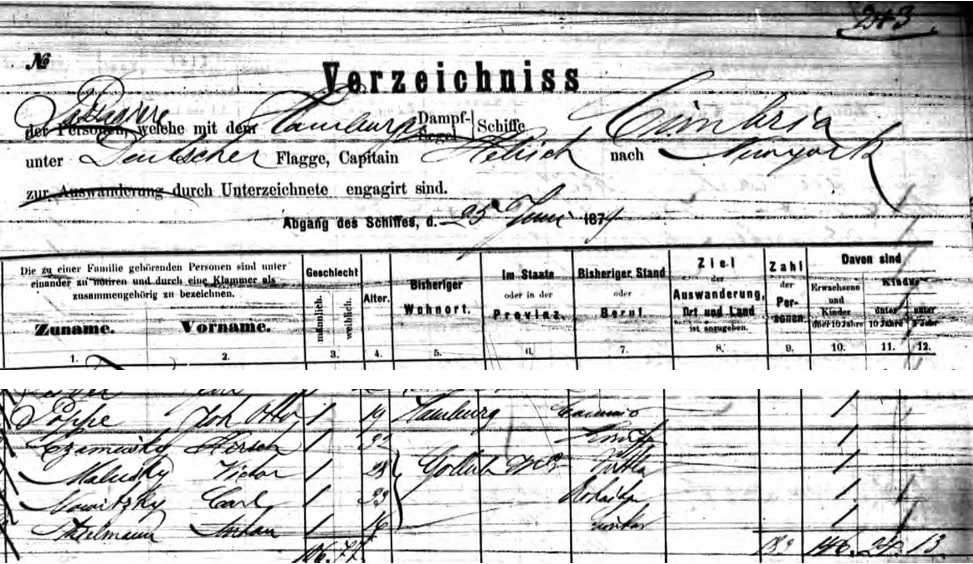 243
№
Verzeichniss
Passagiere
der Personen, welche mit dem Hamburger Dampf- Segel Schiffe Cimbria
unter Deutscher Flagge, Capitain nach Newyork
zur Auswanderung durch Unterzeichnete engagirt sind.
Abgang des Schiffes, d. 25 Juni 1874
Die zu einer Familie gehörenden Personen sind unter einander zu notiren und durch eine Klammer als zusammengehörig zu bezeichnen. Geschlecht Alter. Bisheriger Wohnort. Im Staate oder in der Provinz. Bisheriger Stand oder Beruf. Ziel der Auswanderung, Ort und Land ist anzugeben. Zahl der Personen. Davon sind
Zuname. Vorname. männlich. weiblich. Erwachsene und Kinder über 10 Jahre Kinder unter 10 Jahre unter 1 Jahr
1. 2. 3. 4. 5. 6. 7. 8. 9. 10. 11. 12.
Poppe Joh Otto 1 19 Hamburg Commis 1
Hirsch 1 1
Malusky Victor 1 28 Gollub 1
Nowitzky Carl 1 22 1
Thielmann 1 16 1
106. 77 183 146. 24. 13